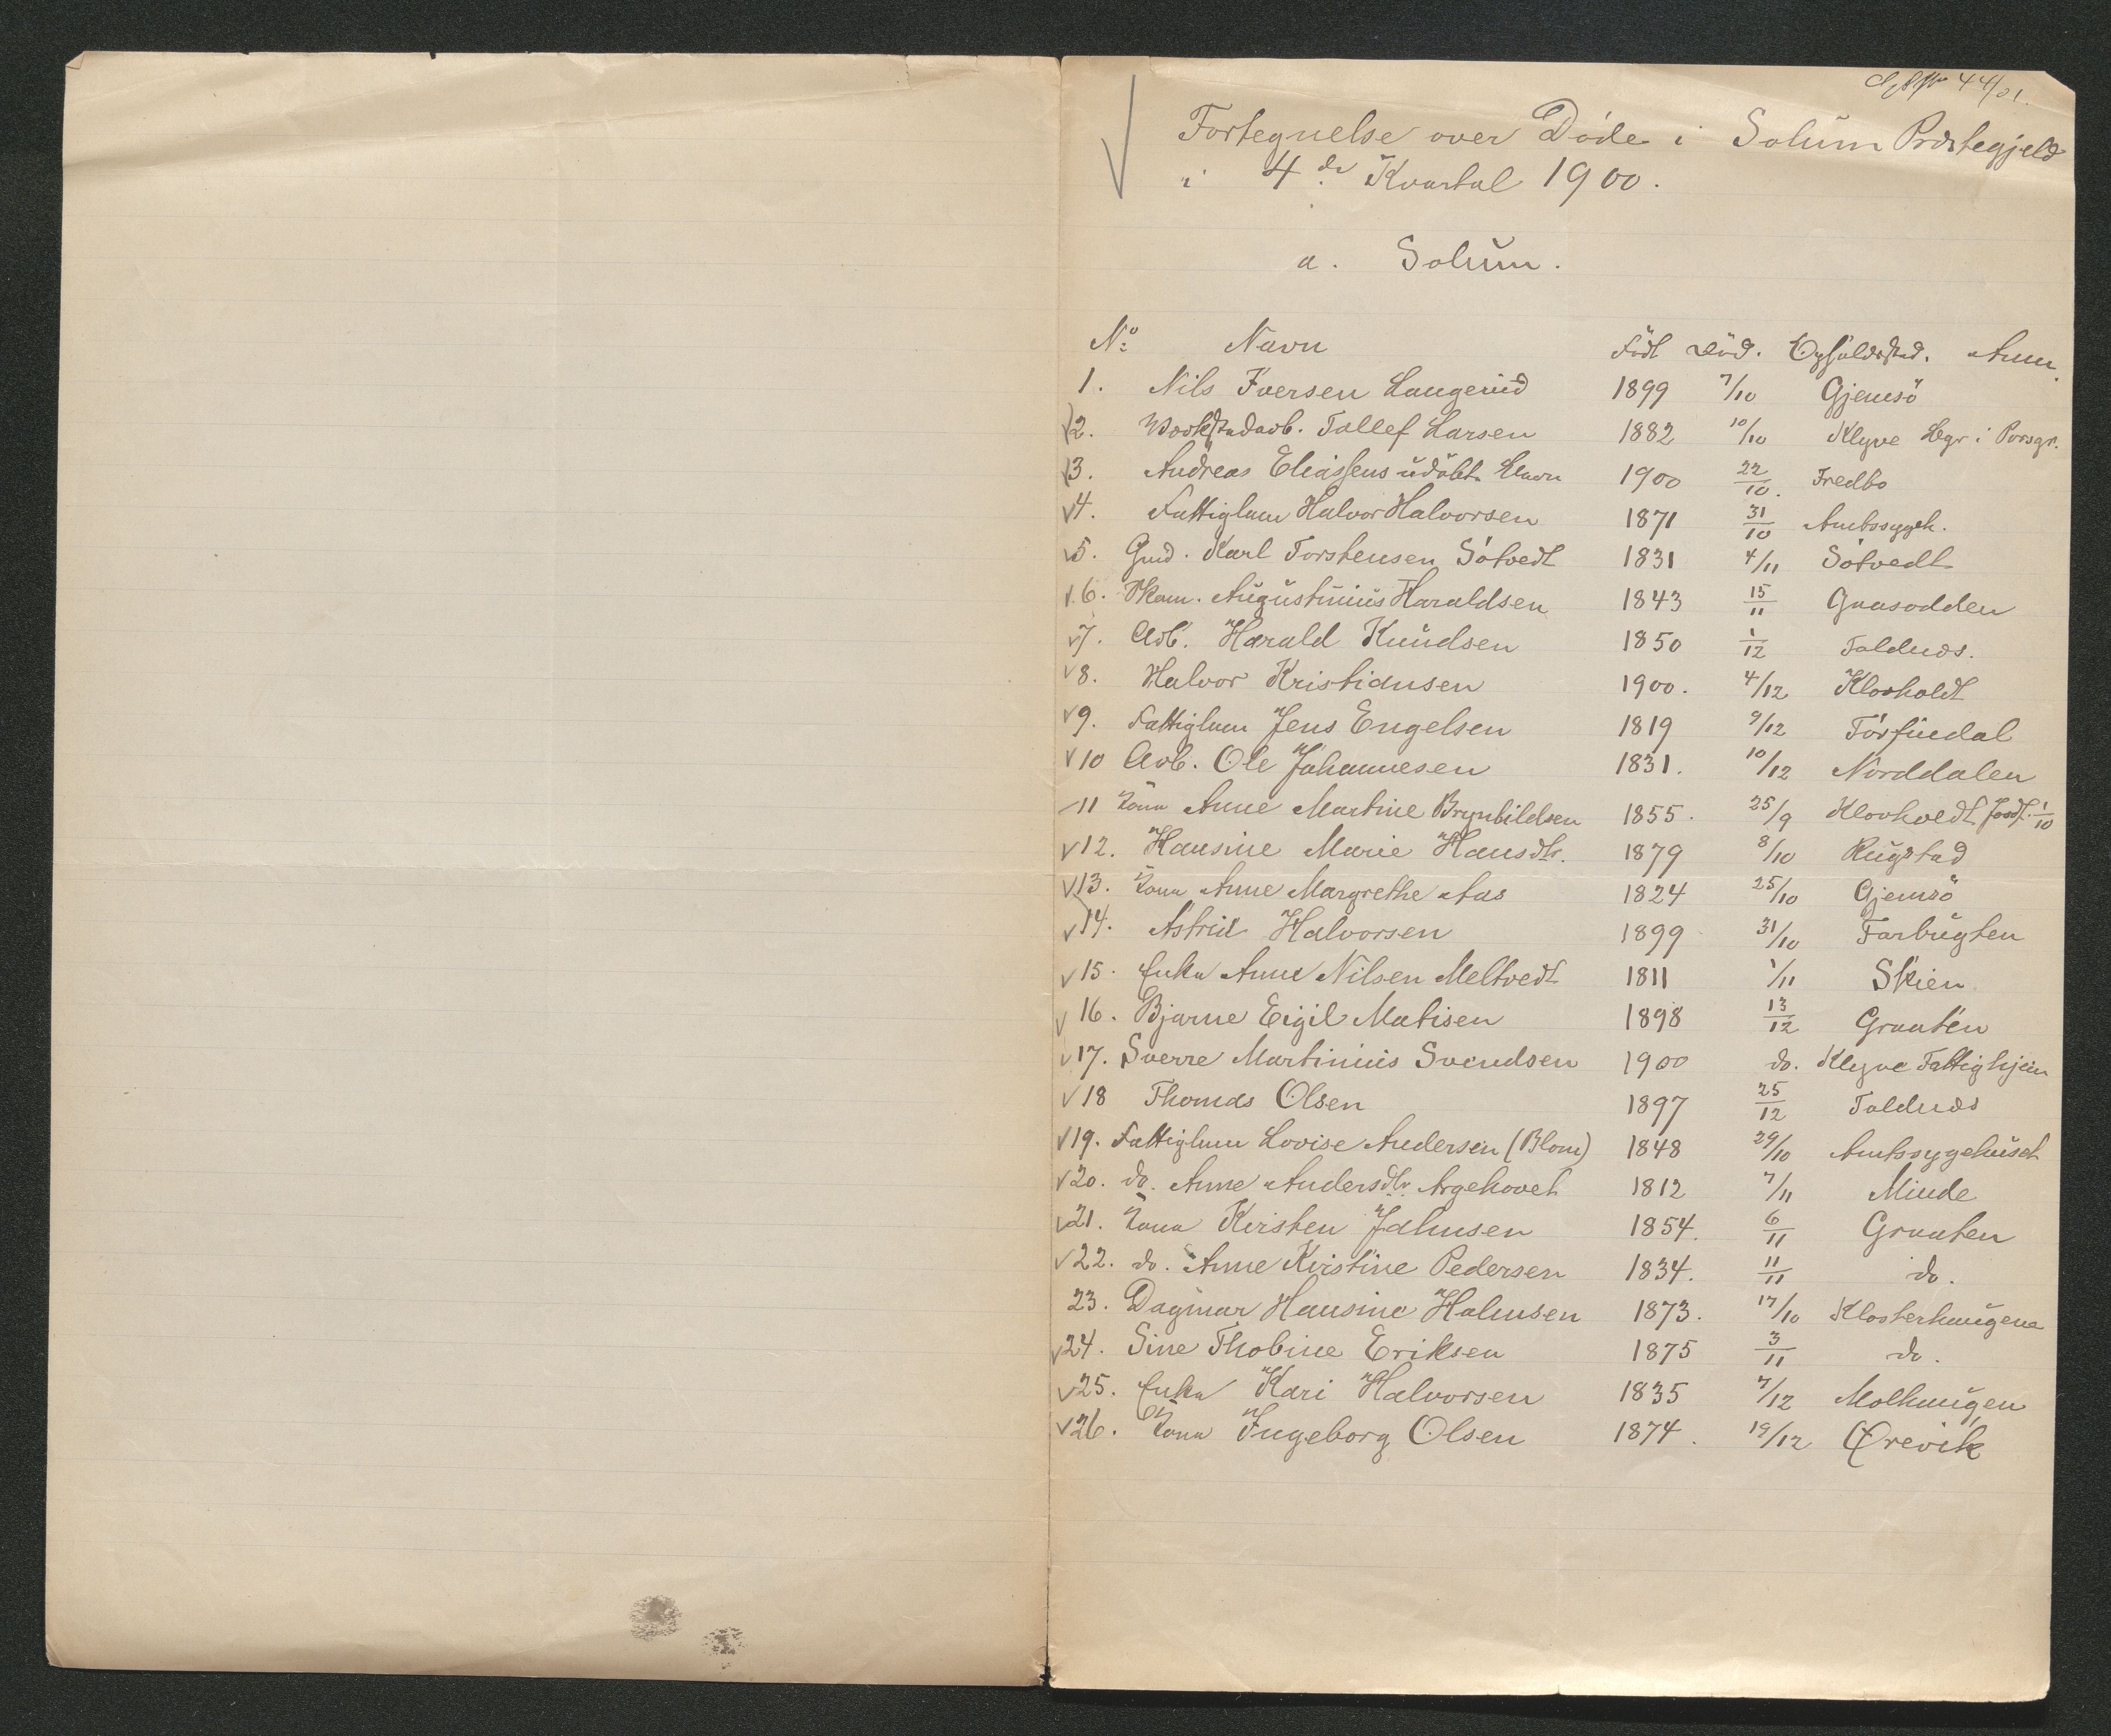 44/01.
Fortegnelse over Döde i Solum Præstegjeld
i 4de Kvartal 1900.
a. Solum.
No Navn Född Död. Opholdssted. Anm.
1. Nils Iversen Langerud 1899 7/10 Gjemsö
2. Værkstadarb. Tollef Larsen 1882 10/10 Klyve Bgr i Porsgr.
3. Andreas Eliassens udöbt. Barn 1900 22/10. Fredbo
4. Fattiglem Halvor Halvorsen 1871 31/10 Amtssygeh.
5. Gmd. Karl Torstensen Sötvedt 1831 4/11 Sötvedt
6. Skom. Augustinius Haraldsen 1843 15/11 Gaasodden
7. Arb. Harald Knudsen 1850 1/12 Toldnæs.
8. Halvor Kristiansen 1900. 4/12 Klovholdt
9. Fattiglem Jens Engelsen 1819 9/12 Törfindal
10 Arb. Ole Johannesen 1831. 10/12 Norddalen
11 Kone Anne Martine Brynhildsen 1855. 25/9 Klovholdt jordf. 1/10
12. Hansine Marie Hansdtr. 1879 8/10 Rugstad
13. Kone Anne Margrethe Aas 1824 25/10 Gjemsö
14. Astrid Halvorsen 1899 31/10 Tarbugten
15. Enke Anne Nilsen Meltvedt 1811 1/11 Skien
16. Bjarne Eigil Matisen 1898 13/12 Graaten
17. Sverre Martinius Svendsen 1900 do. Klyve Fattighjem
18 Thomas Olsen 1897 25/12 Toldnæs
19. Fattiglem Lovise Andersen (Blom) 1848 29/10 Amtssygehuset
20. do. Anne Andersdtr. Argehovet 1812 7/11 Minde
21. Kone Kirsten Jahnsen 1854. 6/11 Graaten
22. do. Anne Kirstine Pedersen 1834. 11/11 do.
23. Dagmar Hansine Halmsen 1873. 17/10 Klosterhaugene
24. Sine Thobine Eriksen 1875 3/11 do.
25. Enke Kari Halvorsen 1835 7/12 Molhaugen
26. Kone Ingeborg Olsen 1874. 19/12 Ørevik